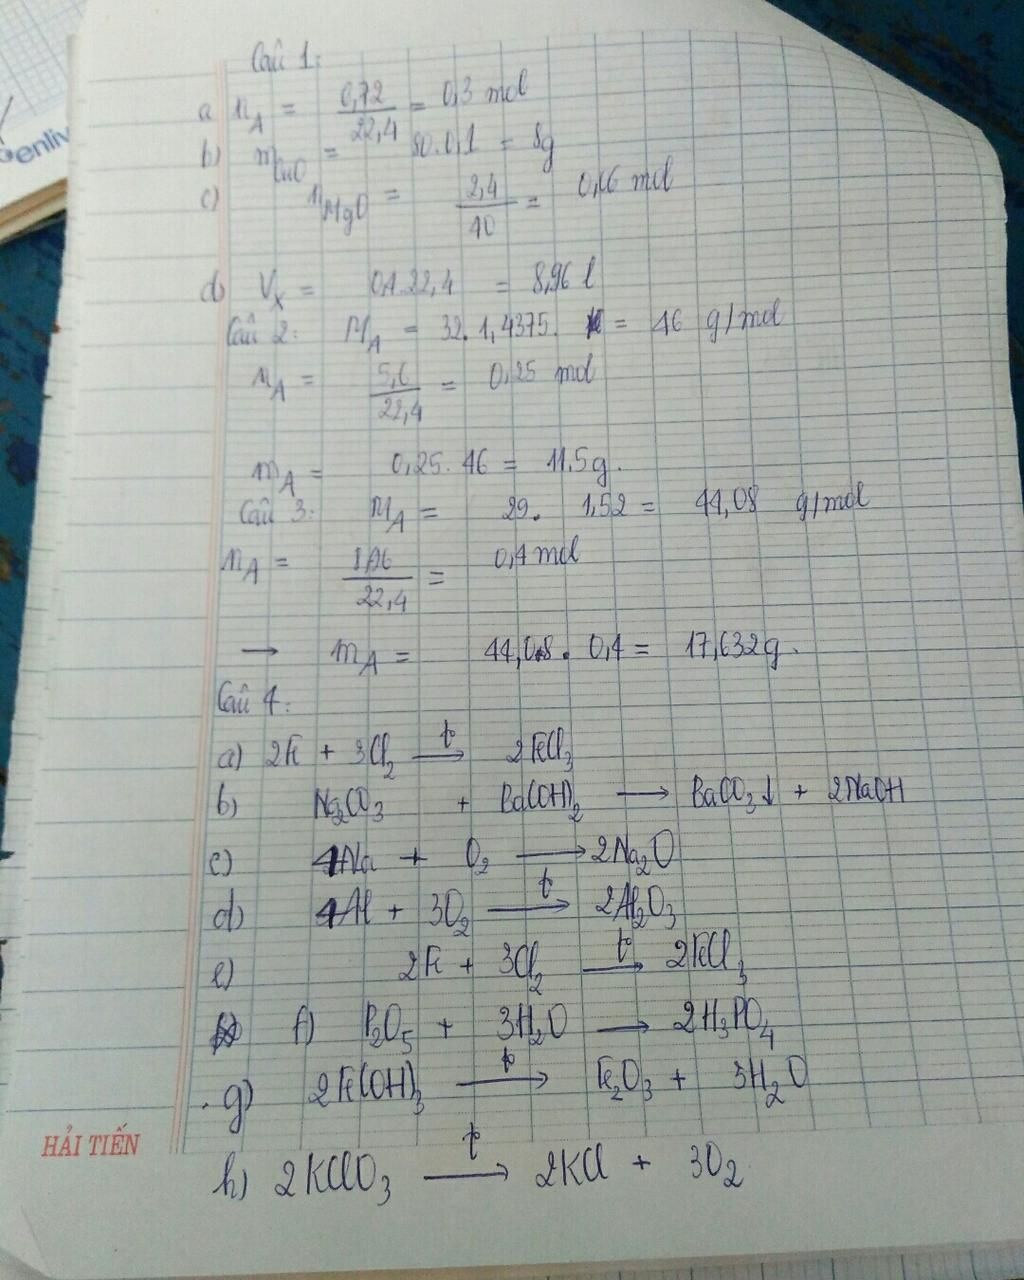 enliv
Câu 1:
a n_A = 6,72/22,4 = 0,3 mol
b) m_CuO = 80.0,1 = 8g
c) n_MgO = 2,4/40 = 0,06 mol
d) V_X = 0,4.22,4 = 8,96 l
Câu 2: M_A = 32.1,4375. = 46 g/mol
n_A = 5,6/22,4 = 0,25 mol
m_A = 0,25.46 = 11,5g.
Câu 3: M_A = 29. 1,52 = 44,08 g/mol
n_A = 8,96/22,4 = 0,4 mol
→ m_A = 44,08. 0,4 = 17,632g.
Câu 4:
a) 2Fe + 3Cl₂ –t°→ 2FeCl₃
b) Na₂CO₃ + Ba(OH)₂ → BaCO₃↓ + 2NaOH
c) 4Na + O₂ → 2Na₂O
d) 4Al + 3O₂ –t°→ 2Al₂O₃
e) 2Fe + 3Cl₂ –t°→ 2FeCl₃
f) P₂O₅ + 3H₂O → 2H₃PO₄
g) 2Fe(OH)₃ –t°→ Fe₂O₃ + 3H₂O
HẢI TIẾN
h) 2KClO₃ –t°→ 2KCl + 3O₂